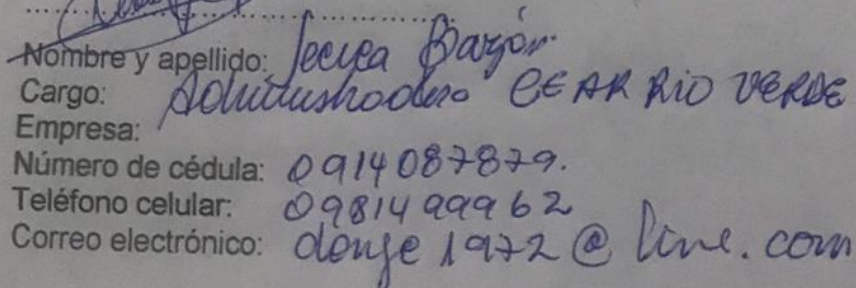 Nombre y apellido: Bazón
Cargo: Administradora CEAR RIO VERDE
Empresa:
Número de cédula: 0914087879.
Teléfono celular: 0981499962
Correo electrónico: 1972@live.com